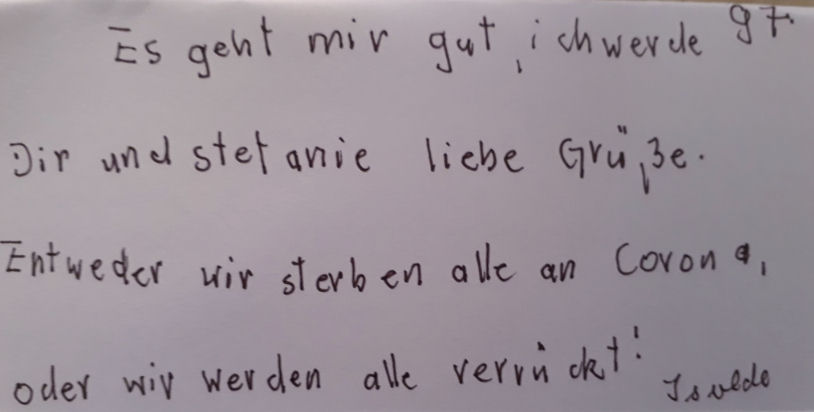 Es geht mir gut, ich werde 97.
Dir und Stefanie liebe Grüße.
Entweder wir sterben alle an Corona,
oder wir werden alle verrückt! Isolde